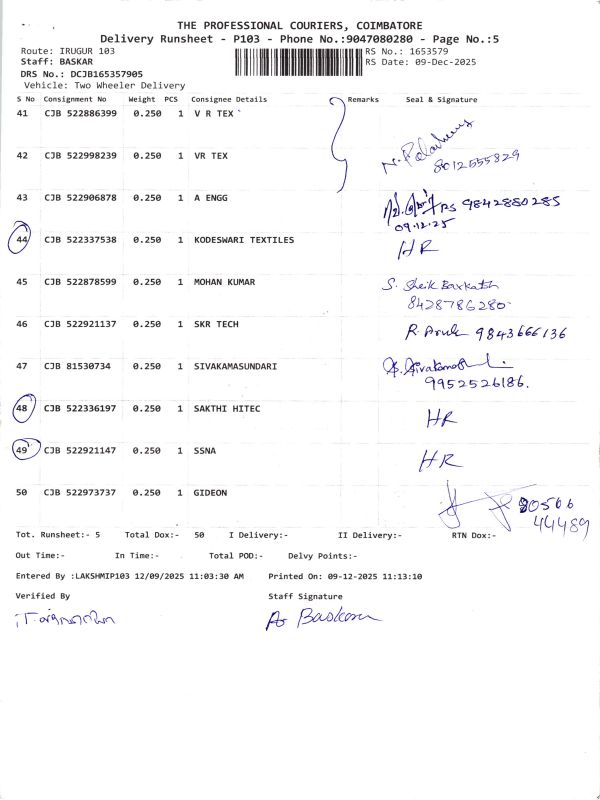 THE PROFESSIONAL COURIERS, COIMBATORE
Delivery Runsheet - P103 - Phone No.:9047080280 - Page No.:5
Route: IRUGUR 103 RS No.: 1653579
Staff: BASKAR RS Date: 09-Dec-2025
DRS No.: DCJB165357905
Vehicle: Two Wheeler Delivery
S No Consignment No Weight PCS Consignee Details Remarks Seal & Signature
41 CJB 522886399 0.250 1 V R TEX
42 CJB 522998239 0.250 1 VR TEX
8012555829
43 CJB 522906878 0.250 1 A ENGG 9842880285
09.12.25
44 CJB 522337538 0.250 1 KODESWARI TEXTILES HR
45 CJB 522878599 0.250 1 MOHAN KUMAR S. Sheik
8428786280
46 CJB 522921137 0.250 1 SKR TECH R. Arul 9843666136
47 CJB 81530734 0.250 1 SIVAKAMASUNDARI
9952526186.
48 CJB 522336197 0.250 1 SAKTHI HITEC HR
49 CJB 522921147 0.250 1 SSNA HR
50 CJB 522973737 0.250 1 GIDEON 80506
44489
Tot. Runsheet:- 5 Total Dox:- 50 I Delivery:- II Delivery:- RTN Dox:-
Out Time:- In Time:- Total POD:- Delvy Points:-
Entered By :LAKSHMIP103 12/09/2025 11:03:30 AM Printed On: 09-12-2025 11:13:10
Verified By Staff Signature
Baskaran